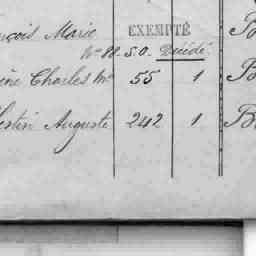 nçois Marie EXEMPTÉ B
Nº 88. S.O. Décédé
ène Charles Mie 55 1 B
lestin Auguste 242 1 B